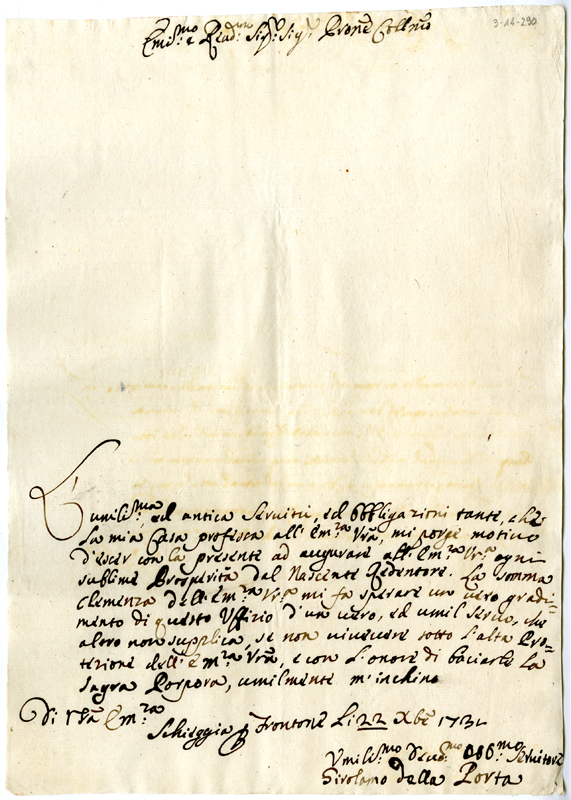 3-14-290
Em̃is.mo e Reud.mo Sig.r Sig.r Prone Coll.mo
L'umiliss.ma, ed antica Servitù, ed Obbligazioni tante, che
La mia Casa professa all'Em.za Vr̃a, mi porge motivo
d'esser con la presente ad augurare all'Em.za Vr̃a ogni
sublime Prosperità dal Nascente Redentore. La somma
Clemenza dell'Em.za Vr̃a mi fa sperare un vero gradi=
mento di questo Uffizio d'un vero, ed umil servo, che
altro non supplica, se non vivere sotto l'alta Pro=
tezione dell'Em.za Vr̃a, e con l'onore di baciarle La
Sagra Porpora, umilmente m'inchino
Di Vr̃a Em.za
Schieggia p Frontone Li 22 Xbre 173
Vmiliss.mo Deud.mo Obb.mo Servitore
Girolamo della Porta